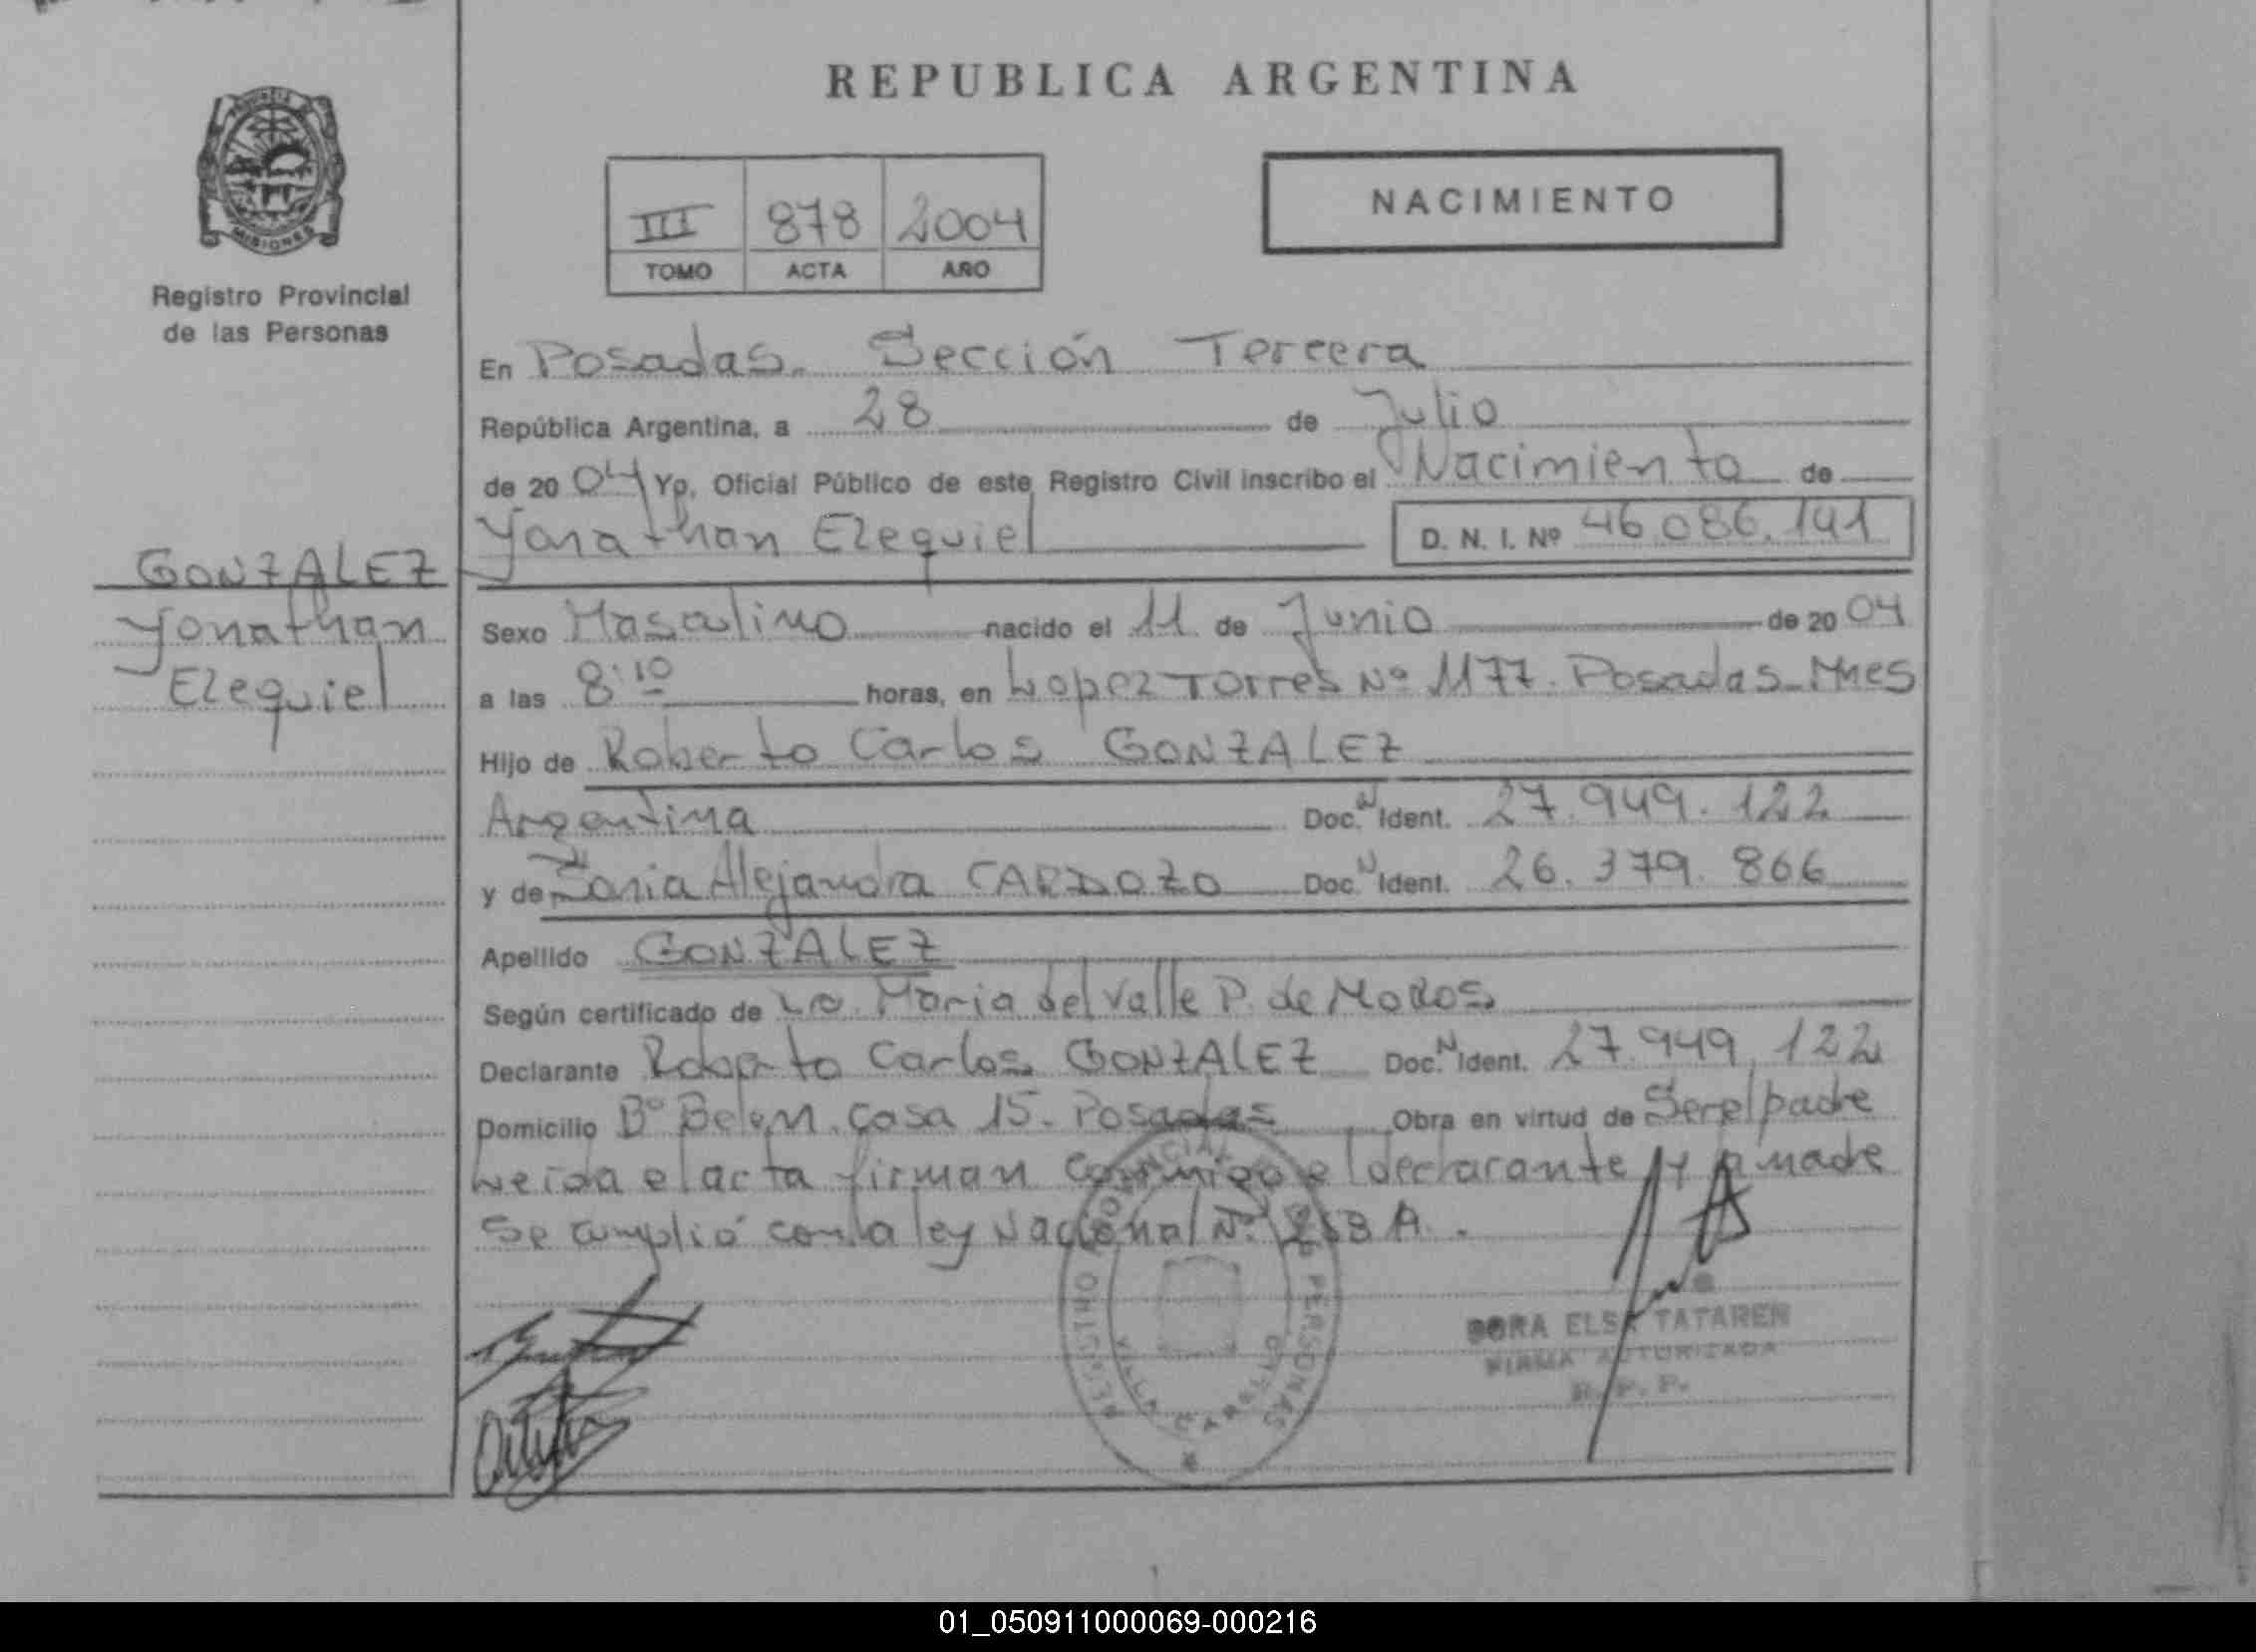 REPUBLICA ARGENTINA
MISIONES
Registro Provincial
de las Personas
III 878 2004
TOMO ACTA AÑO
NACIMIENTO
En Posadas. Sección Tercera
República Argentina, a 28 de Julio
de 20 04 Yo, Oficial Público de este Registro Civil inscribo el Nacimiento de
Yonathan Ezequiel D. N. I. Nº 46.086.141
GONZALEZ
Yonathan
Ezequiel
Sexo Masculino nacido el 11 de Junio de 20 04
a las 8:10 horas, en Lopez Torres Nº 1177. Posadas-Mnes
Hijo de Roberto Carlos GONZALEZ
Argentina Doc. N Ident. 27.949.122
y de Sonia Alejandra CARDOZO Doc. N Ident. 26.379.866
Apellido GONZALEZ
Según certificado de Lo. Maria del Valle P. de
Declarante Roberto Carlos GONZALEZ Doc. N Ident. 27.949.122
Domicilio Bº Belen. Casa 15- Posadas Obra en virtud de Ser el padre
Leida el acta firman conmigo el declarante y la madre
Se cumplió con la ley Nacional Nº
REGISTRO PROVINCIAL DE LAS PERSONAS
VILLA CABELLO
DORA ELSA TATAREN
FIRMA AUTORIZADA
R. P. P.
01_050911000069-000216